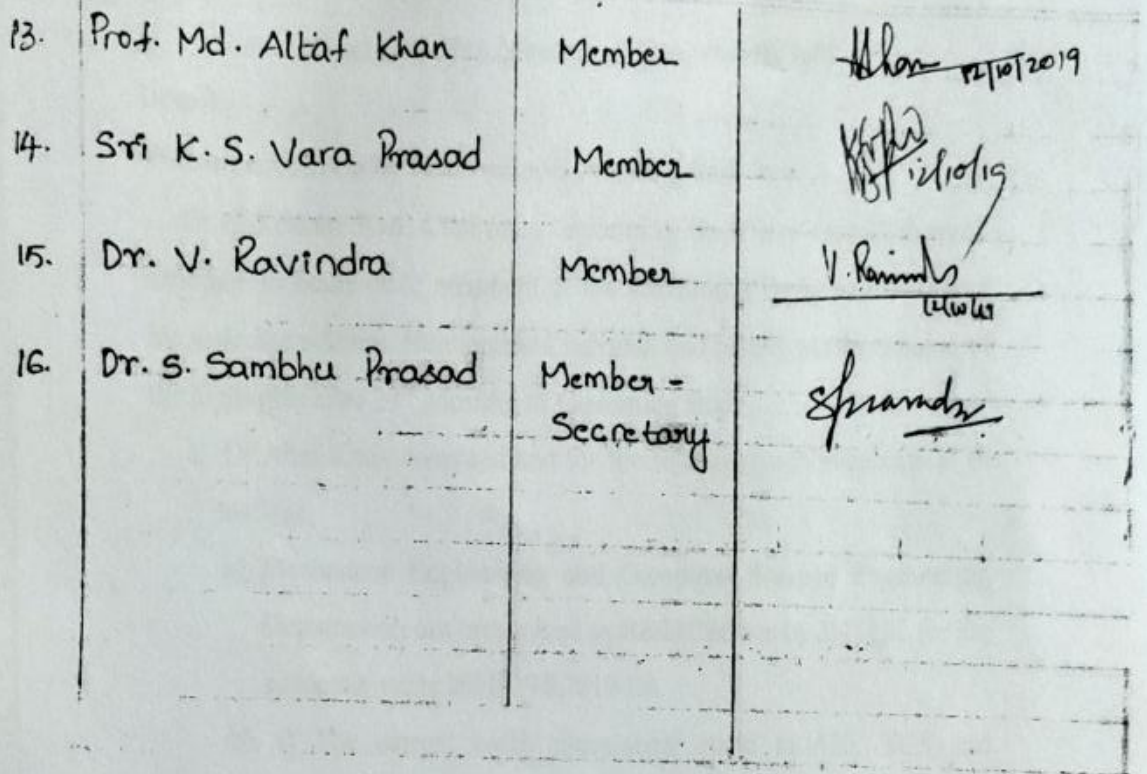 13. Prof. Md. Altaf Khan Member Khan 12/10/2019
14. Sri K. S. Vara Prasad Member 12/10/19
15. Dr. V. Ravindra Member V. Ravindra
16. Dr. S. Sambhu Prasad Member -
Secretary